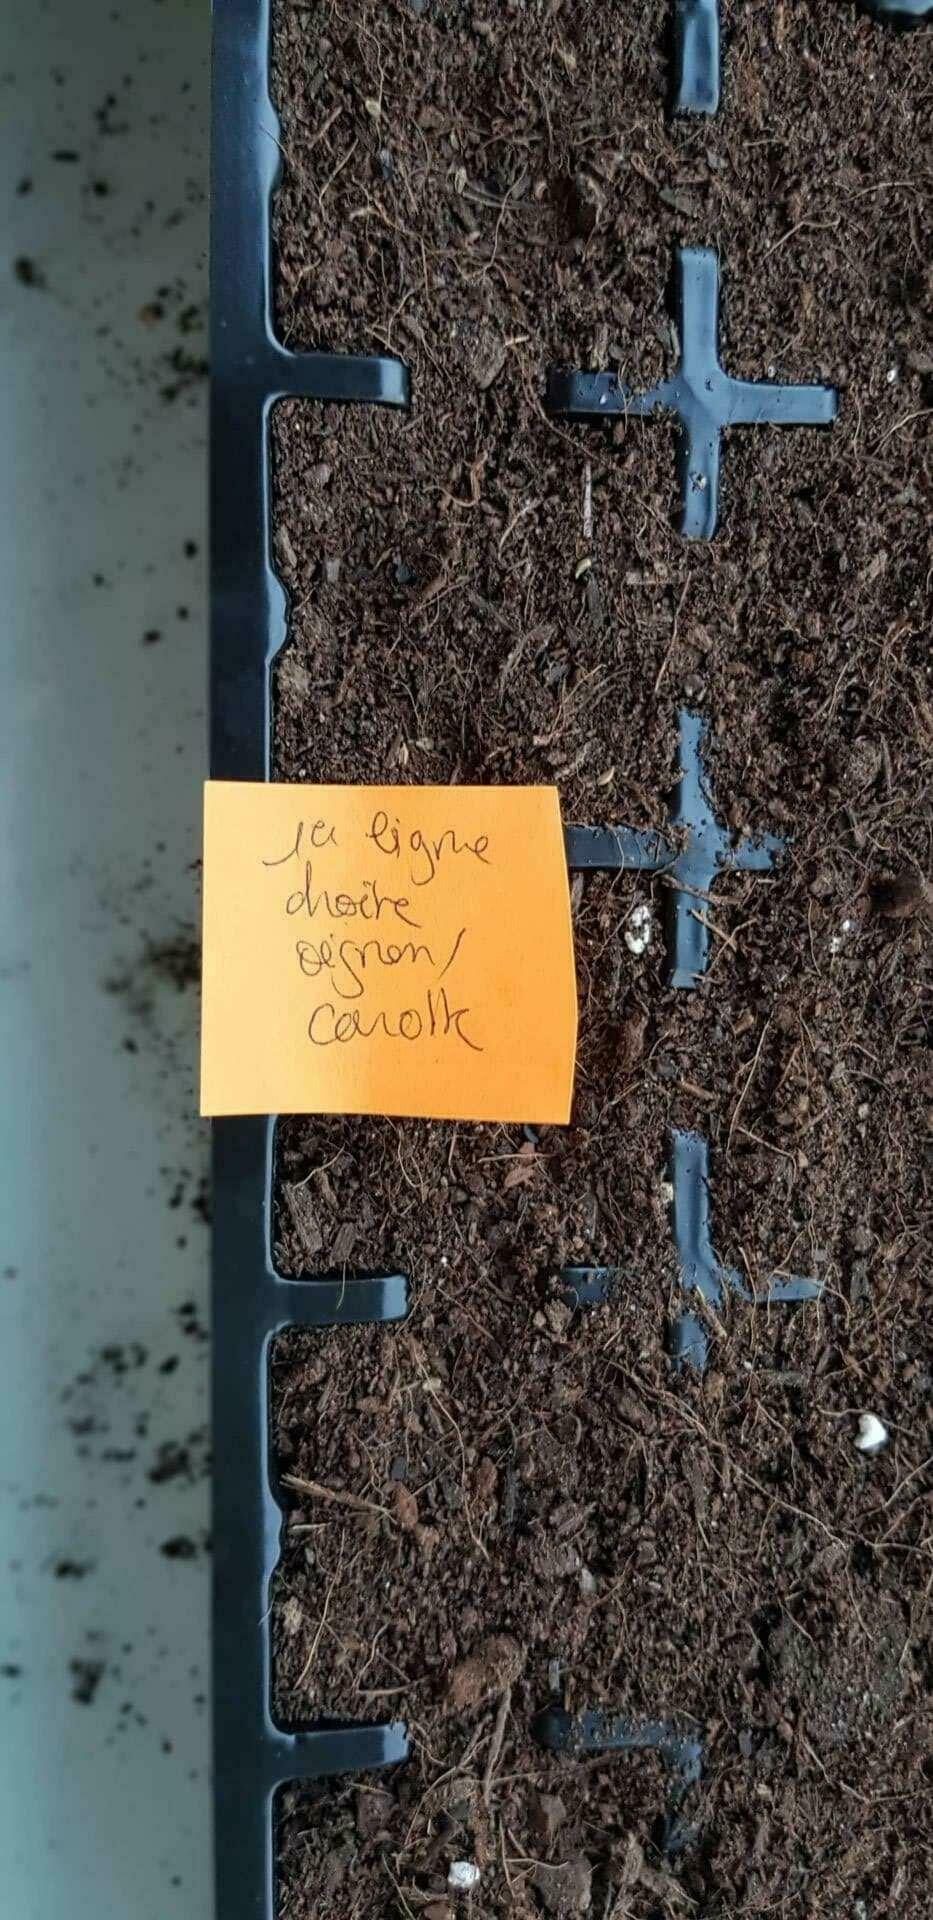 1er ligne
droite
oignon/
carotte